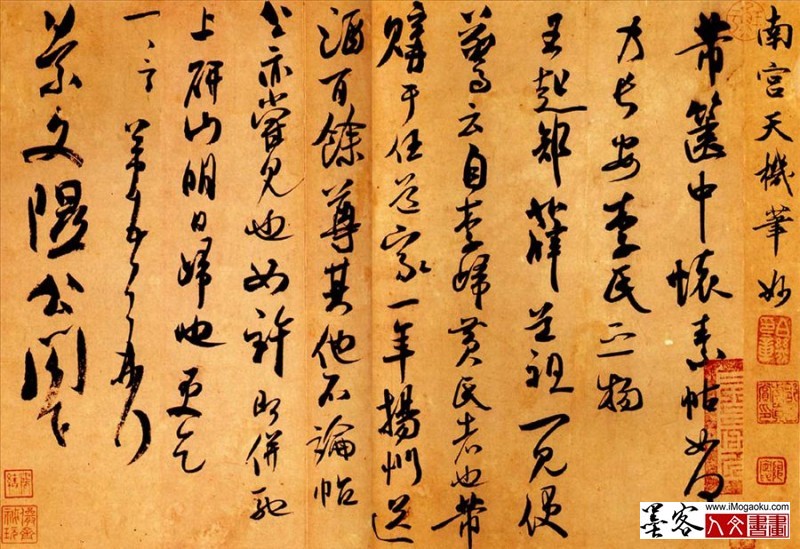 南宮天機筆妙
芾篋中懷素帖如何
乃長安李氏之物
王起部薛道祖一見便
驚云自李歸黃氏者也芾
購于任道家一年揚州送
酒百餘尊其他不論帖
公亦嘗見也如許即併馳
上研山明日歸也更乞
一言芾頓首再拜
景文隰公閤下
墨客
www.iMogaoku.com
人文書畫